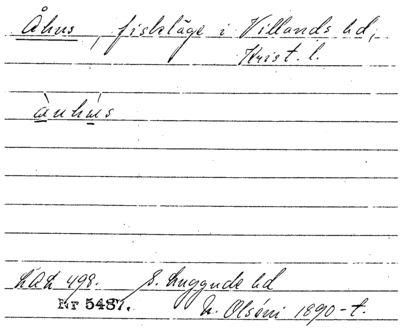 Åhus, fiskläge i Villands hd,
Krist. l.
ànhús
LAL 498. S. Luggude hd
Nr 5487. N. Olséni 1890-t.